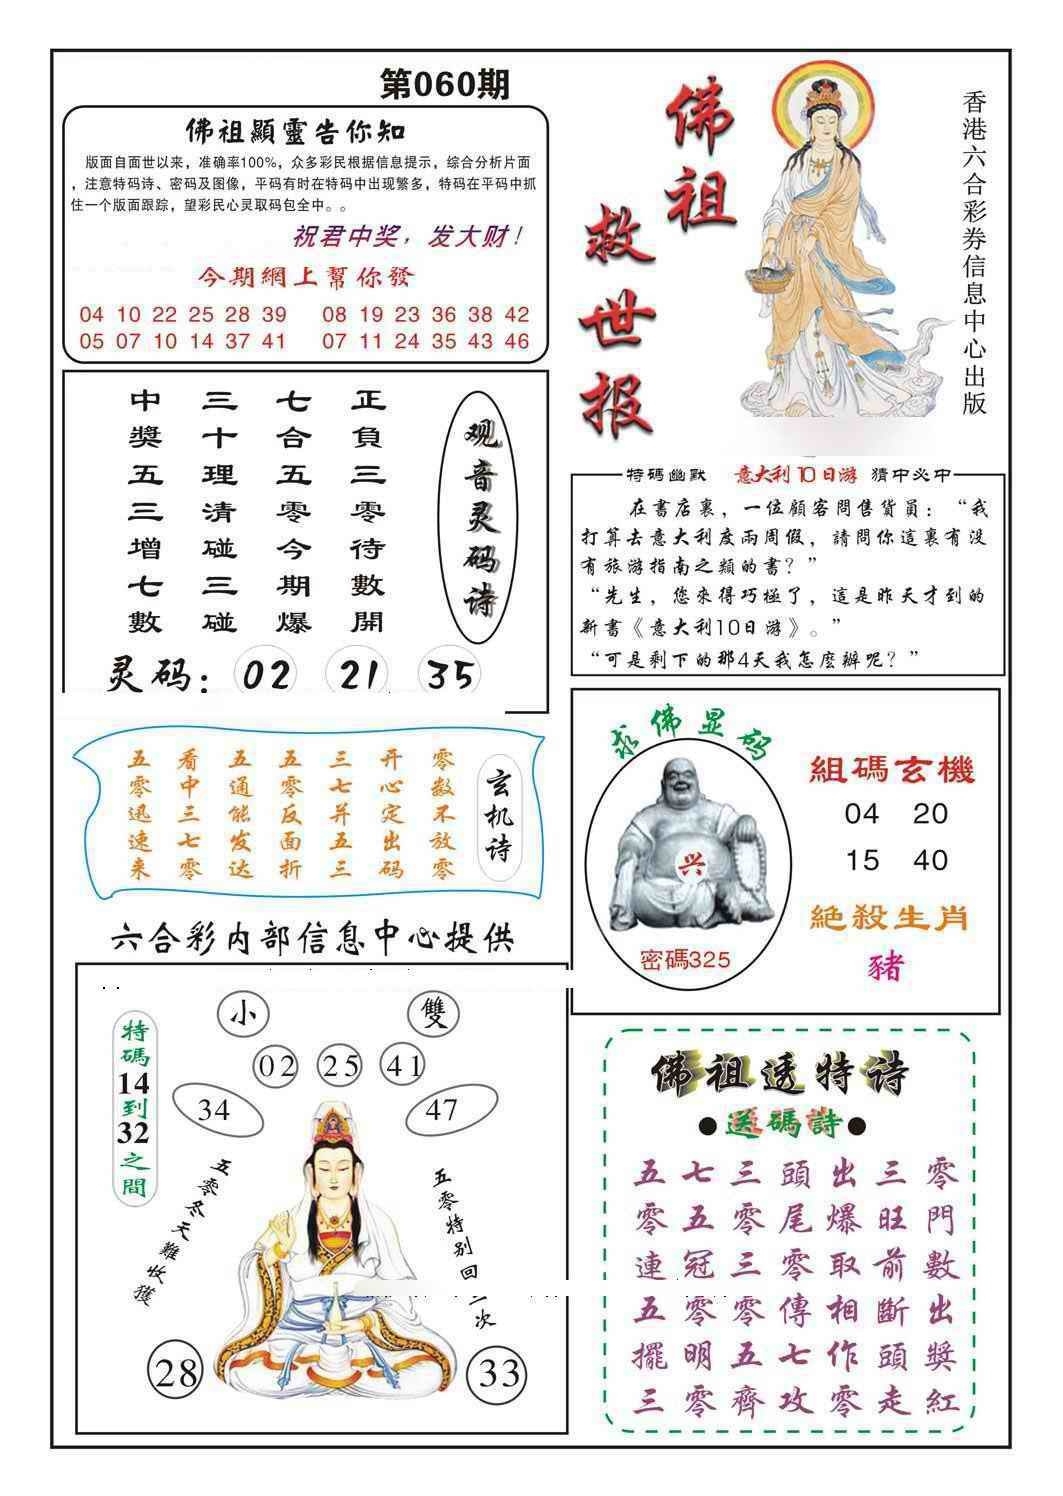 第060期
佛祖顯靈告你知
版面自面世以来，准确率100%，众多彩民根据信息提示，综合分析片面
，注意特码诗、密码及图像，平码有时在特码中出现繁多，特码在平码中抓
住一个版面跟踪，望彩民心灵取码包全中。。
祝君中奖，发大财！
今期網上幫你發
04 10 22 25 28 39 08 19 23 36 38 42
05 07 10 14 37 41 07 11 24 35 43 46
佛祖
救世报
香港六合彩券信息中心出版
观音灵码诗
正負三零待數開
七合五零今期爆
三十理清碰三碰
中獎五三增七數
灵码：02 21 35
特碼幽默 意大利10日游 猜中必中
在書店裏，一位顧客問售貨員：“我
打算去意大利度兩周假，請問你這裏有没
有旅游指南之類的書？”
“先生，您來得巧極了，這是昨天才到的
新書《意大利10日游》。”
“可是剩下的那4天我怎麽辦呢？”
玄机诗
零数不放零
开心定出码
三七并五三
五零反面折
五通能发达
看中三七零
五零迅速来
求佛显码
兴
密碼325
組碼玄機
04 20
15 40
絶殺生肖
豬
六合彩内部信息中心提供
特碼14到32之間
小
雙
02 25 41
34
47
五零冬天難收獲
五零特别回二次
28
33
佛祖透特诗
●送碼詩●
零門數出獎紅
三旺前斷頭走
出爆取相作零
頭尾零傳七攻
三零三零五齊
七五冠零明零
五零連五擺三